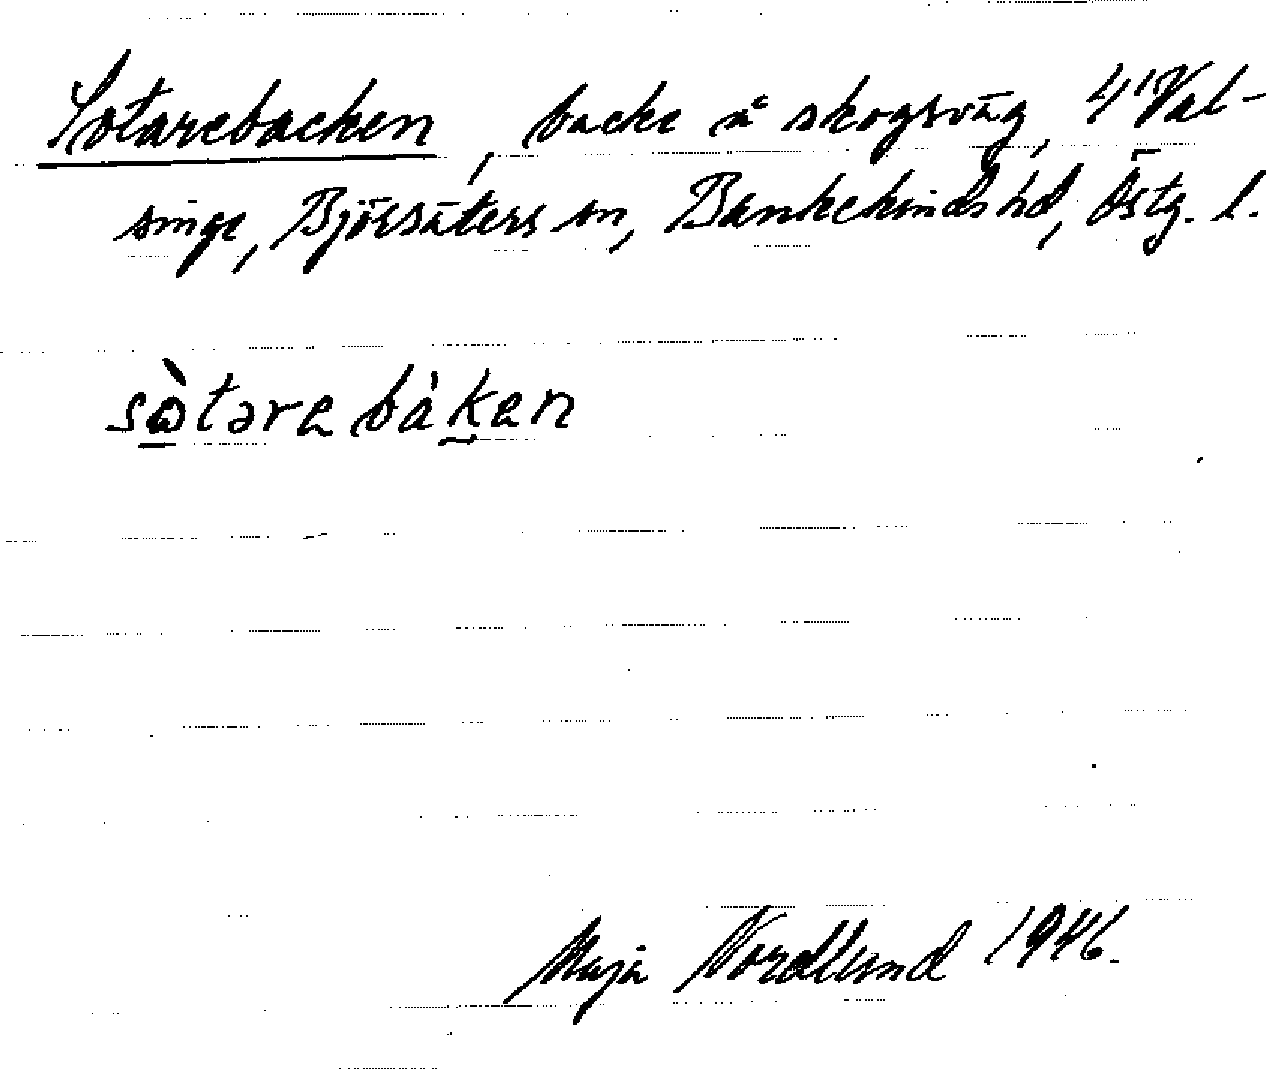 Sotarebacken, backe å skogsväg, 4' Val-
singe, Björsäters sn, Bankekinds hd, Östg. l.
sò̱tarebáken
Maja Nordlund 1946.